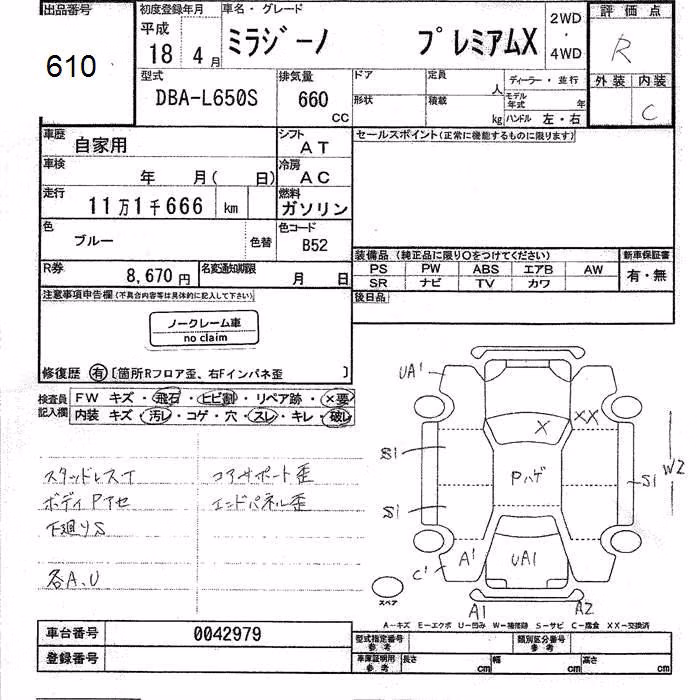 出品番号
610
初度登録年月
平成
18 4 月
車名・グレード
ミラジーノ プレミアムX
2WD
・
4WD
評価点
R
外装 内装
C
型式
DBA-L650S
排気量
660
CC
ドア
定員
人
形状
積載
kg
ディーラー・並行
モデル年式 年
ハンドル 左・右
車歴
自家用
シフト
AT
車検
年 月( 日)
冷房
AC
走行
11万1千666 km
燃料
ガソリン
色
ブルー
色替
色コード
B52
R券
8,670 円
名変通知期限
月 日
セールスポイント(正常に機能するものに限ります)
装備品(純正品に限り○をつけてください)
PS PW ABS エアB AW
SR ナビ TV カワ
新車保証書
有・無
後日品
注意事項申告欄(不具合内容等は具体的に記入して下さい)
ノークレーム車
no claim
修復歴 有 [箇所Rフロア歪、右Fインパネ歪 ]
検査員
記入欄
FW キズ・飛石・ヒビ割・リペア跡・×要
内装 キズ・汚レ・コゲ・穴・スレ・キレ・破レ
スタッドレスT
ボディPアセ
下廻りS
各A.U
コアサポート歪
エンドパネル歪
UA1
X
XX
S1
Pハゲ
S1
W2
S1
A1
UA1
C1
スペア
A1
A2
A-キズ E-エクボ U-凹み W-補修跡 S-サビ C-腐食 XX-交換済
車台番号
0042979
登録番号
型式指定番号
参考
類別区分番号
参考
車庫証明用
参考
長さ cm
幅 cm
高さ cm